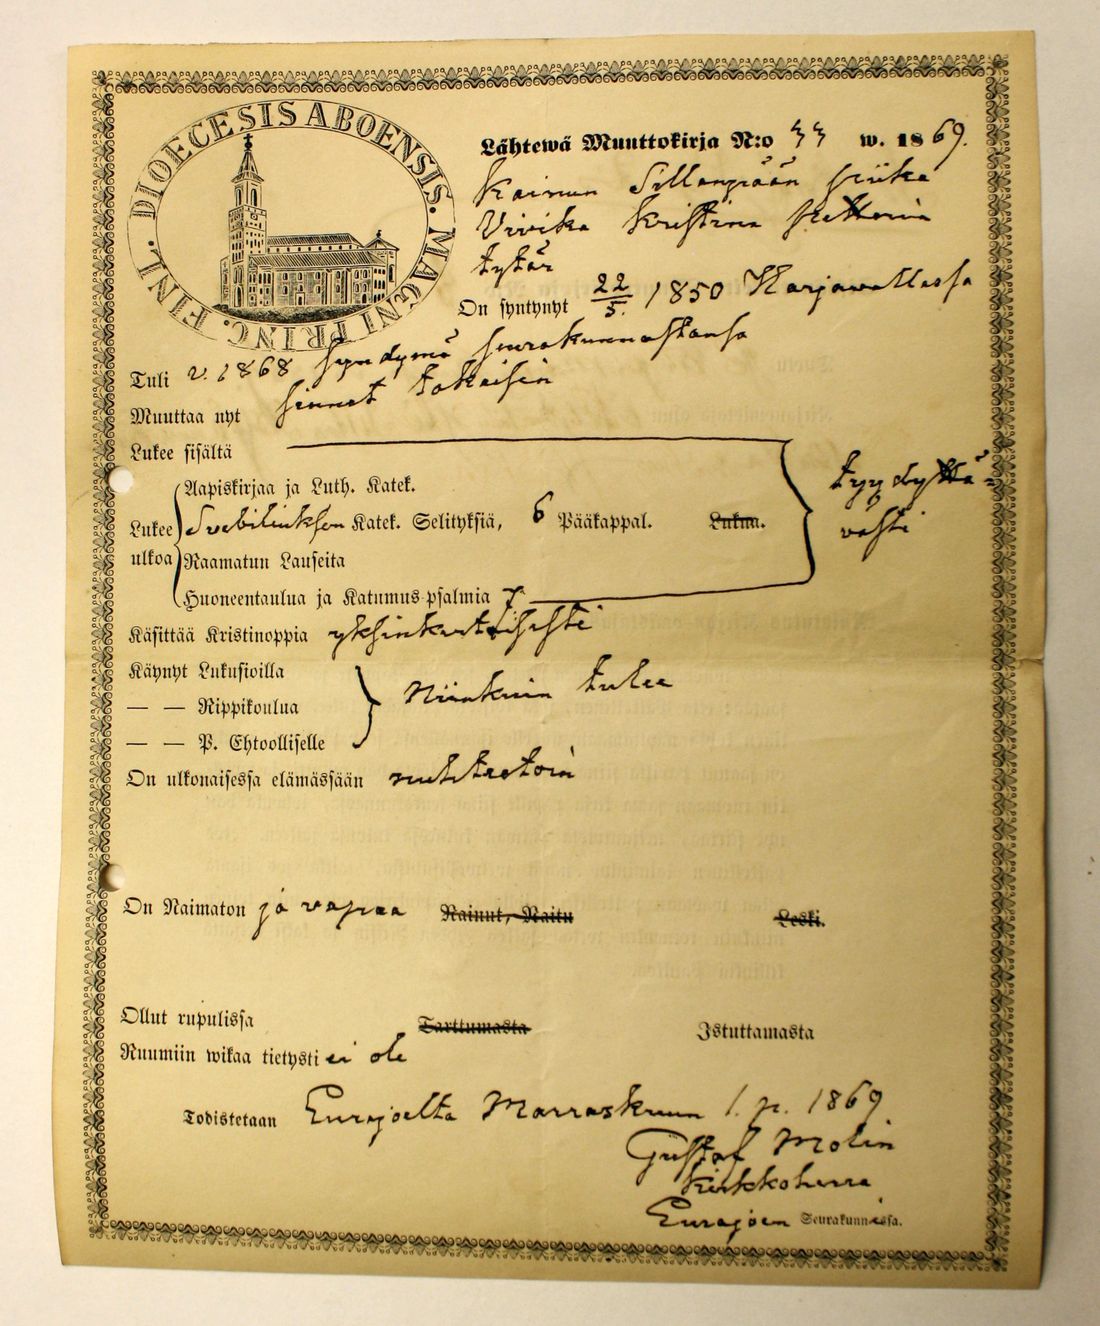 DIOECESIS ABOENSIS. MAGNI PRINC. FINL.
Lähtewä Muuttokirja N:o 44 w. 1869.
Kainun Sillanpään piika
Vivika Kristina
tytär
On syntynyt 22/5. 1850 Harjawallassa
Tuli v. 1868 syndymä seurakunnastansa
Muuttaa nyt sinnet takaisin
Lukee sisältä
Aapiskirjaa ja Luth. Katek.
Lukee ulkoa
Svebiliuksen Katek. Selityksiä, 6 Pääkappal. Lukun.
Raamatun Lauseita
Huoneentaulua ja Katumus-psalmia 7
tyydyttä-
västi
Käsittää Kristinoppia yksinkertaisesti
Käynyt Lukusioilla
— — Rippikoulua
— — P. Ehtoolliselle
Niinkuin tulee
On ulkonaisessa elämässään nuhteetoin
On Naimaton ja vapaa Nainut, Naitu Leski.
Ollut rupulissa Tarttumasta Istuttamasta
Ruumiin wikaa tietysti ei ole
Todistetaan Eurajoelta Marraskuun 1. p. 1869
Gustaf Molin
Kirkkoherra
Eurajoen Seurakunnassa.